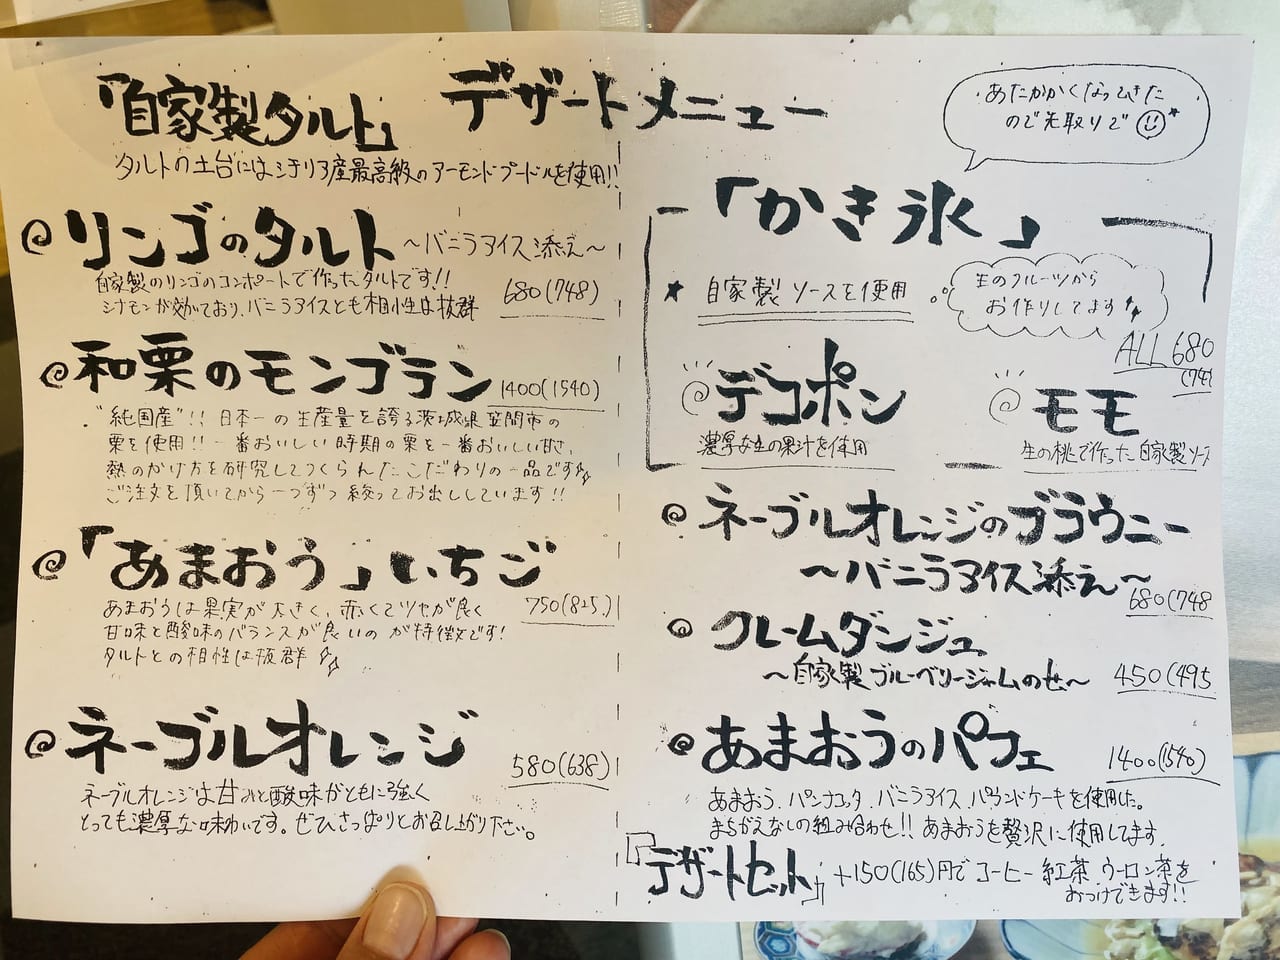 デザートメニュー
「自家製タルト」
タルトの土台にはシチリア産最高級のアーモンドプードルを使用!!
リンゴのタルト ～バニラアイス添え～
自家製のリンゴのコンポートで作ったタルトです!!
シナモンが効いており、バニラアイスとも相性は抜群
680(748)
和栗のモンブラン 1400(1540)
"純国産"!! 日本一の生産量を誇る茨城県笠間市の
栗を使用!! 一番おいしい時期の栗を一番おいしい甘さ、
熱のかけ方を研究してつくられたこだわりの一品です
ご注文を頂いてから一つずつ絞ってお出ししています!!
「あまおう」いちご
あまおうは果実が大きく、赤くてツヤが良く
750(825)
甘味と酸味のバランスが良いのが特徴です!
タルトとの相性は抜群
ネーブルオレンジ
580(638)
ネーブルオレンジは甘みと酸味がともに強く
とっても濃厚な味わいです。ぜひさっぱりとお召し上がり下さい。
あたたかくなってきた
ので先取りで
「かき氷」
★ 自家製ソースを使用
生のフルーツから
お作りしてます
ALL 680
(748
デコポン
濃厚な生の果汁を使用
モモ
生の桃で作った自家製ソース
ネーブルオレンジのブラウニー
～バニラアイス添え～
680(748
クレームダンジュ
～自家製ブルーベリージャムのせ～
450(495
あまおうのパフェ
1400(1540)
あまおう、パンナコッタ、バニラアイス、パウンドケーキを使用した。
まちがえなしの組み合わせ!! あまおうを贅沢に使用してます。
『デザートセット』 +150(165)円で コーヒー 紅茶 ウーロン茶を
おつけできます!!